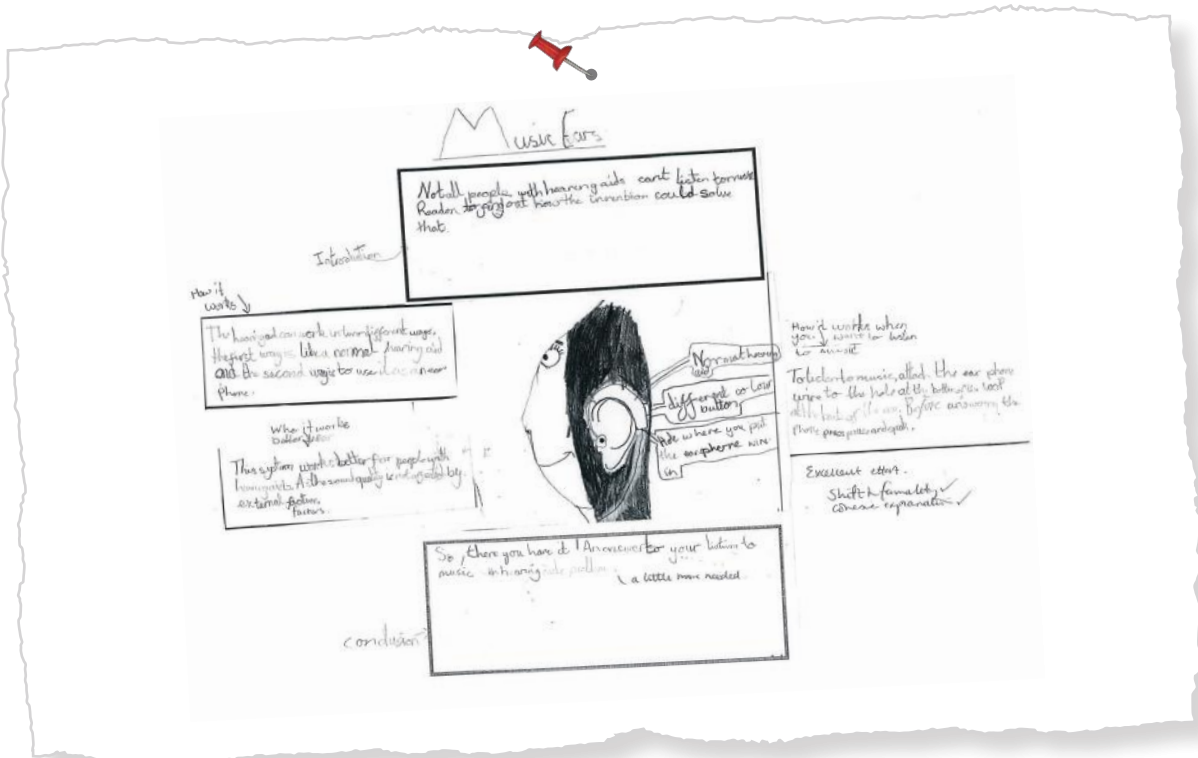 Music Ears
Not all people with hearing aids cant listen to music
Readon to find out how the invention could solve
that.
Introdution
How it
works
The hearing aid can work in two different ways,
the first way is like a normal hearing aid
and the second way is to use it as an ear
phone.
Who it works
better for
This system works better for people with
hearing aids. As the sound quality
external factors.
factors.
Normal hearing
aid
different colour
button
hole where you put
the earpherne wire
in
How it works when
you want to listen
to music
To listen to music, attach the ear phone
wire to the hole at the bottom
of the ear. Before answering the
Phone press pause and
Excellent effort.
Shift in formality ✓
cohesive explanation ✓
So, there you have it! An answer to your listen to
music in hearing aids problem.
a little more needed
conclusion